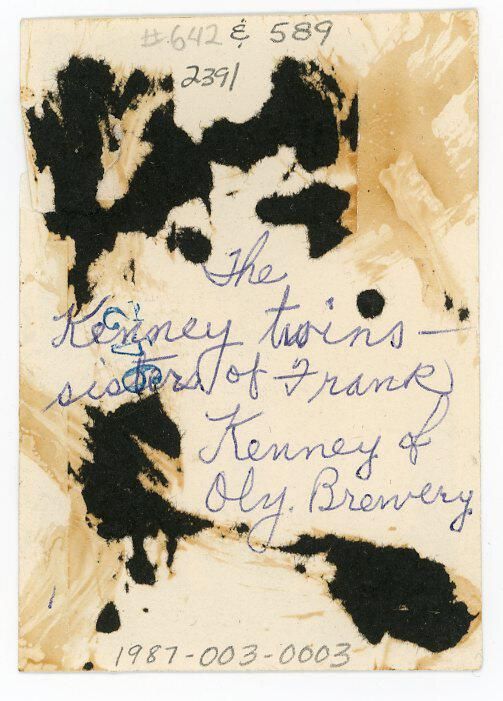 #642 & 589
2391
The
Kenney twins —
sisters of Frank
Kenney of
Oly. Brewery
1987-003-0003